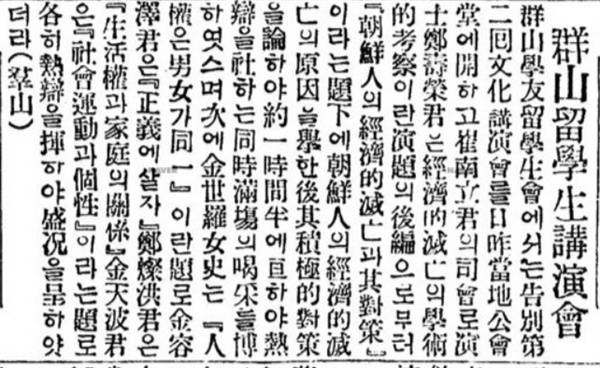 群山留學生講演會
群山學友留學生會에서는告別第
二回文化講演會를日昨當地公會
堂에開하고崔南立君의司會로演
士鄭壽榮君은經濟的滅亡의學術
的考察이란演題의後編으로부터
『朝鮮人의經濟的滅亡과其對策』
이라는題下에朝鮮人의經濟的滅
亡의原因을擧한後其積極的對策
을論하야約一時間半에亘하야熱
辯을社하는同時滿塲의喝采를博
하엿스며次에金世羅女史는『人
權은男女가同一』이란題로金容
澤君은『正義에살자』鄭燦洪君은
『生活權과家庭의關係』金天波君
은『社會運動과個性』이라는題로
各히熱辯을揮하야盛況을呈하얏
더라(羣山)